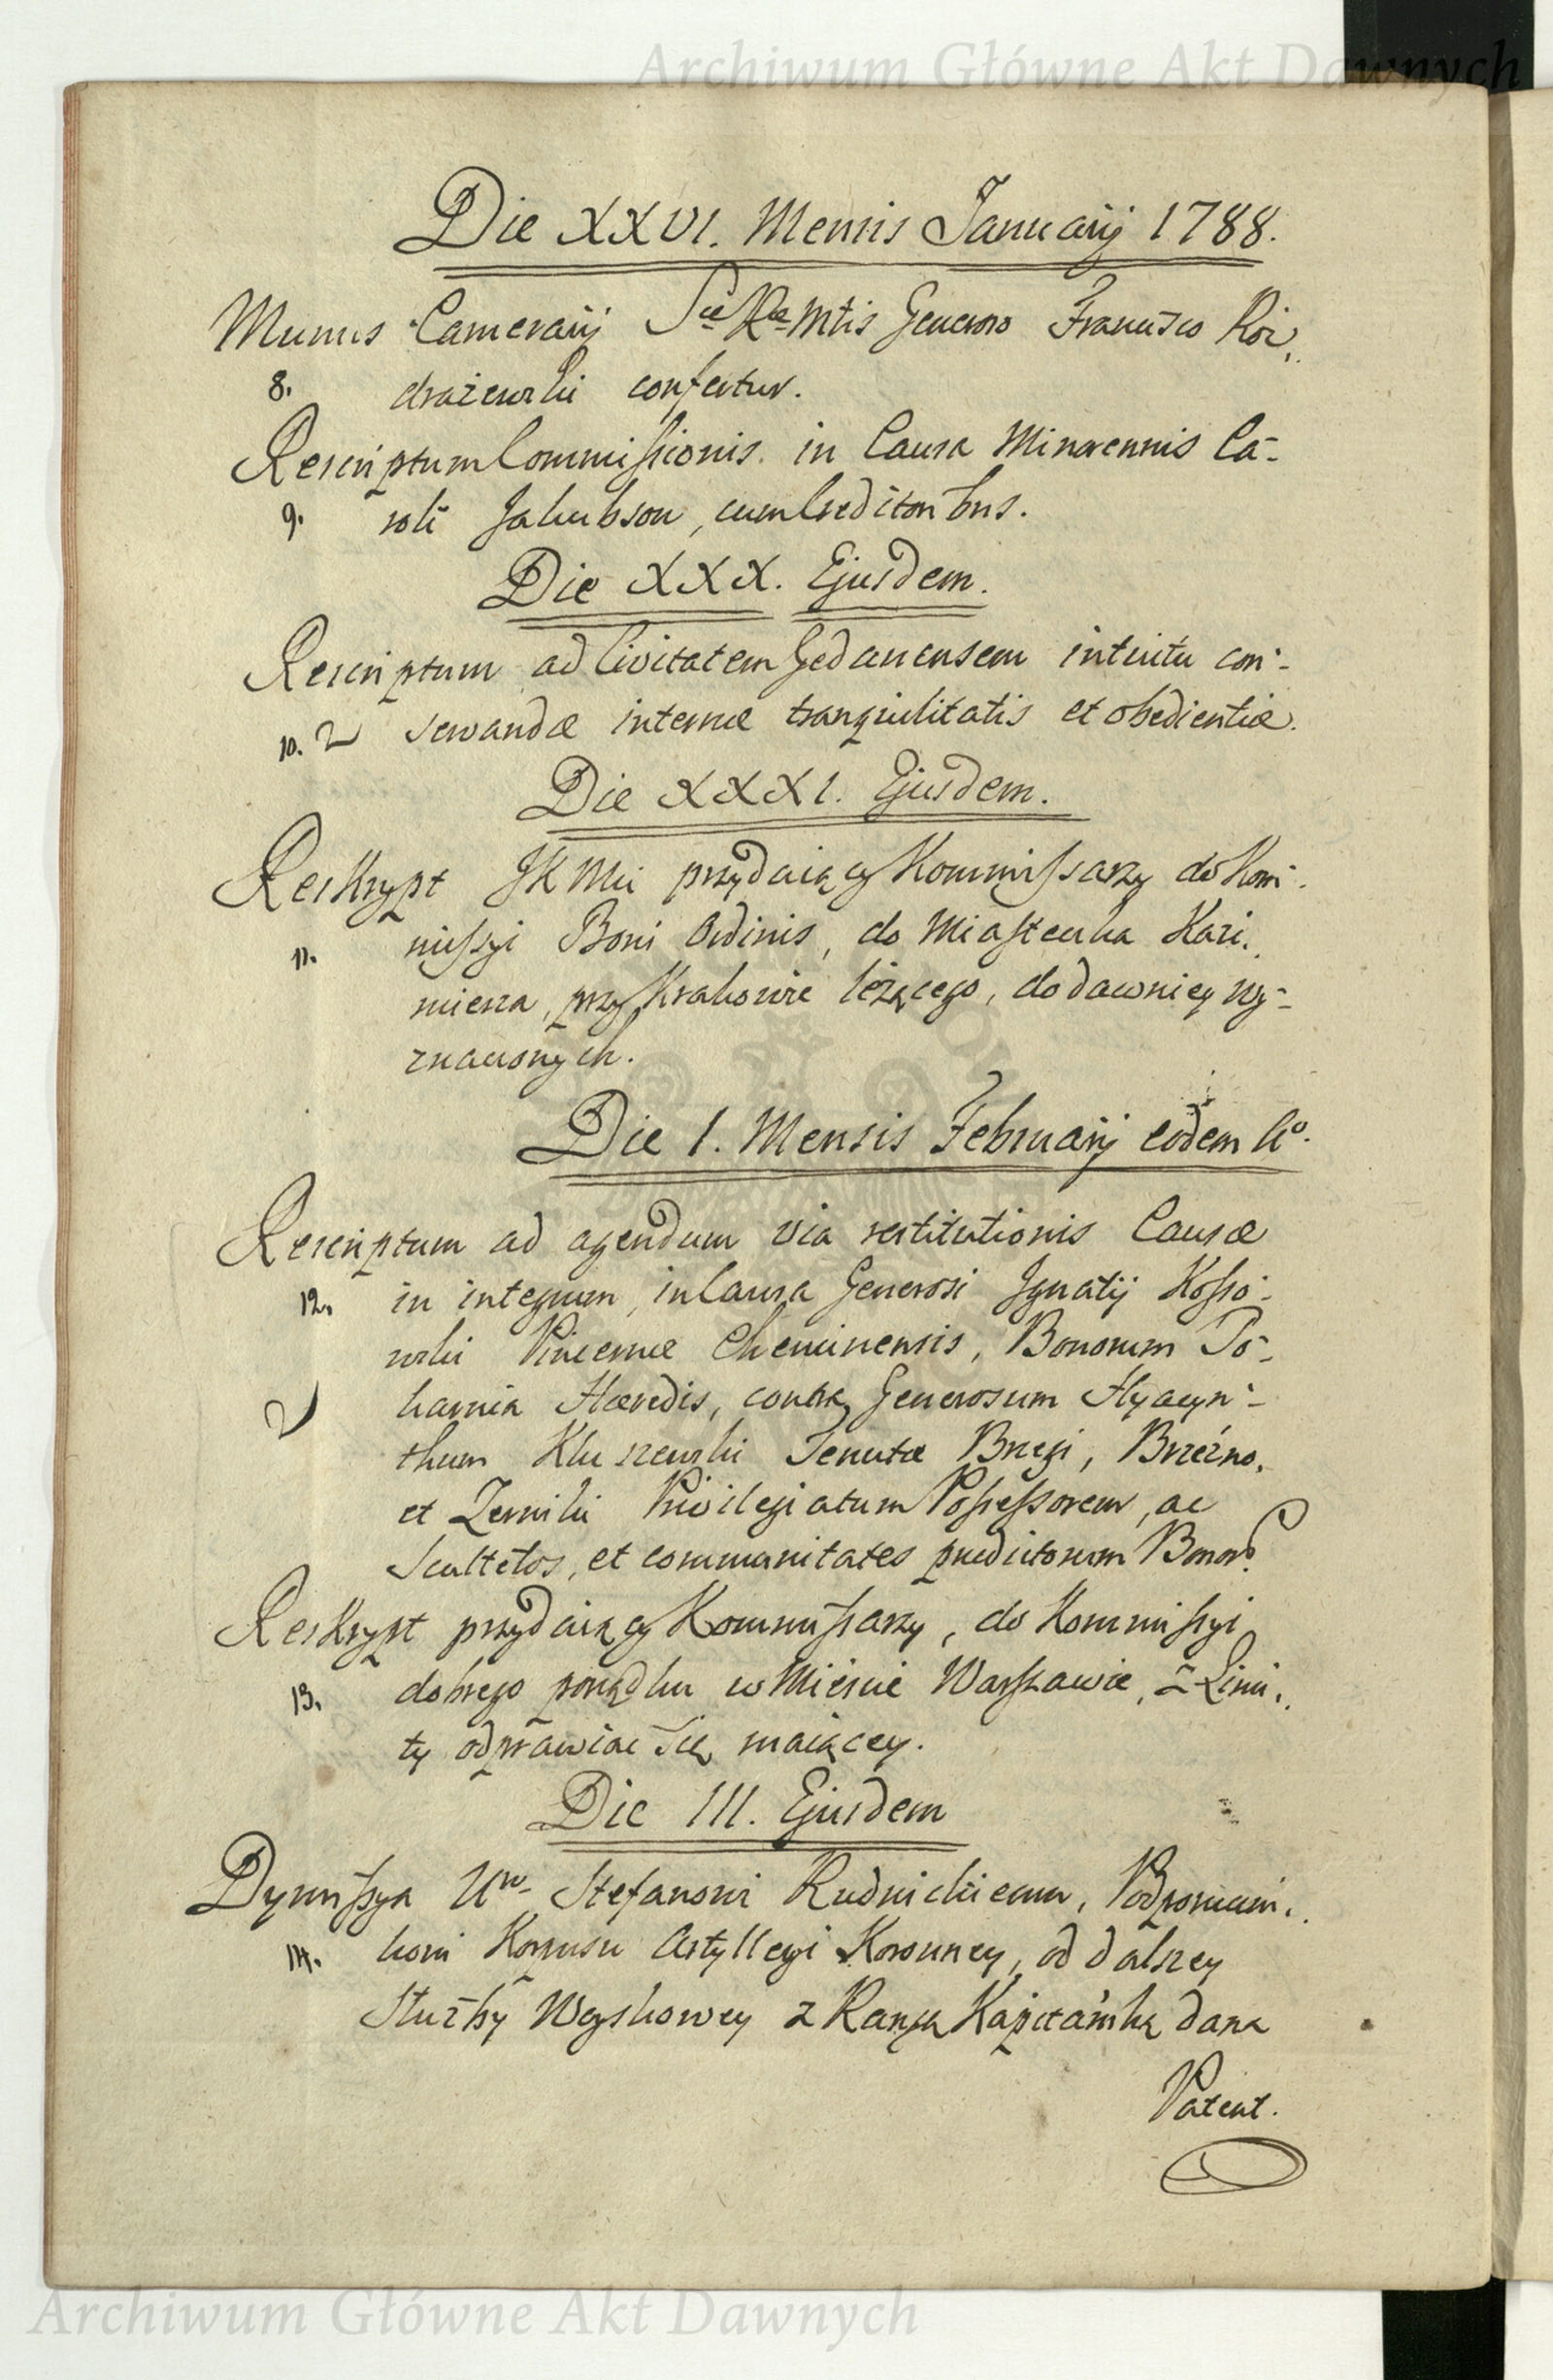 Archiwum Główne Akt Dawnych
Die XXVI. Mensis Januarij 1788.
Munus Camerarij Sæ Ræ Mtis Generoso Francisco Roz,
8. drażewski confertur.
Rescriptum Commissionis in Causa Minorennis Ca-
9. roli Jakubson, cum Creditoribus.
Die XXX. Ejusdem.
Rescriptum ad Civitatem Gedanensem intuitu con-
10. servandæ internæ tranquilitatis et obedientiæ.
Die XXXI. Ejusdem.
Reskrypt JKMci przydaiący Kommissarzy do Kom-
11. missyi Boni Ordinis, do Miasteczka Kazi,
mierza, przy Krakowie leżącego, do dawniey wy-
znaczonych.
Die 1. Mensis Februarij eodem Ao.
Rescriptum ad agendum via restitutionis Causæ
12. in integrum, in Causa Generosi Ignatij Kosso-
wski Pincernæ Chencinensis, Bonorum Po-
karnia Hæredis, contra Generosum Hyacyn-
thum Kluszewski Tenutæ Brzegi, Brzeźno,
et Zerniki Privilegiatum Possessorem, ac
Scultetos, et communitates prædictorum Bonor.
Reskrypt przydaiący Kommissarzy, do Kommissyi
13. dobrego porządku w Mieście Warszawie, z Limi,
ty odprawiac się maiącey.
Die III. Ejusdem
Dymissya Uw Stefanowi Rudnickiemu, Podporuczni,
14. kowi Korpusu Artylleryi Koronney, od dalszey
Służby Woyskowey z Rangą Kapitańską dana
Patent.
Archiwum Główne Akt Dawnych